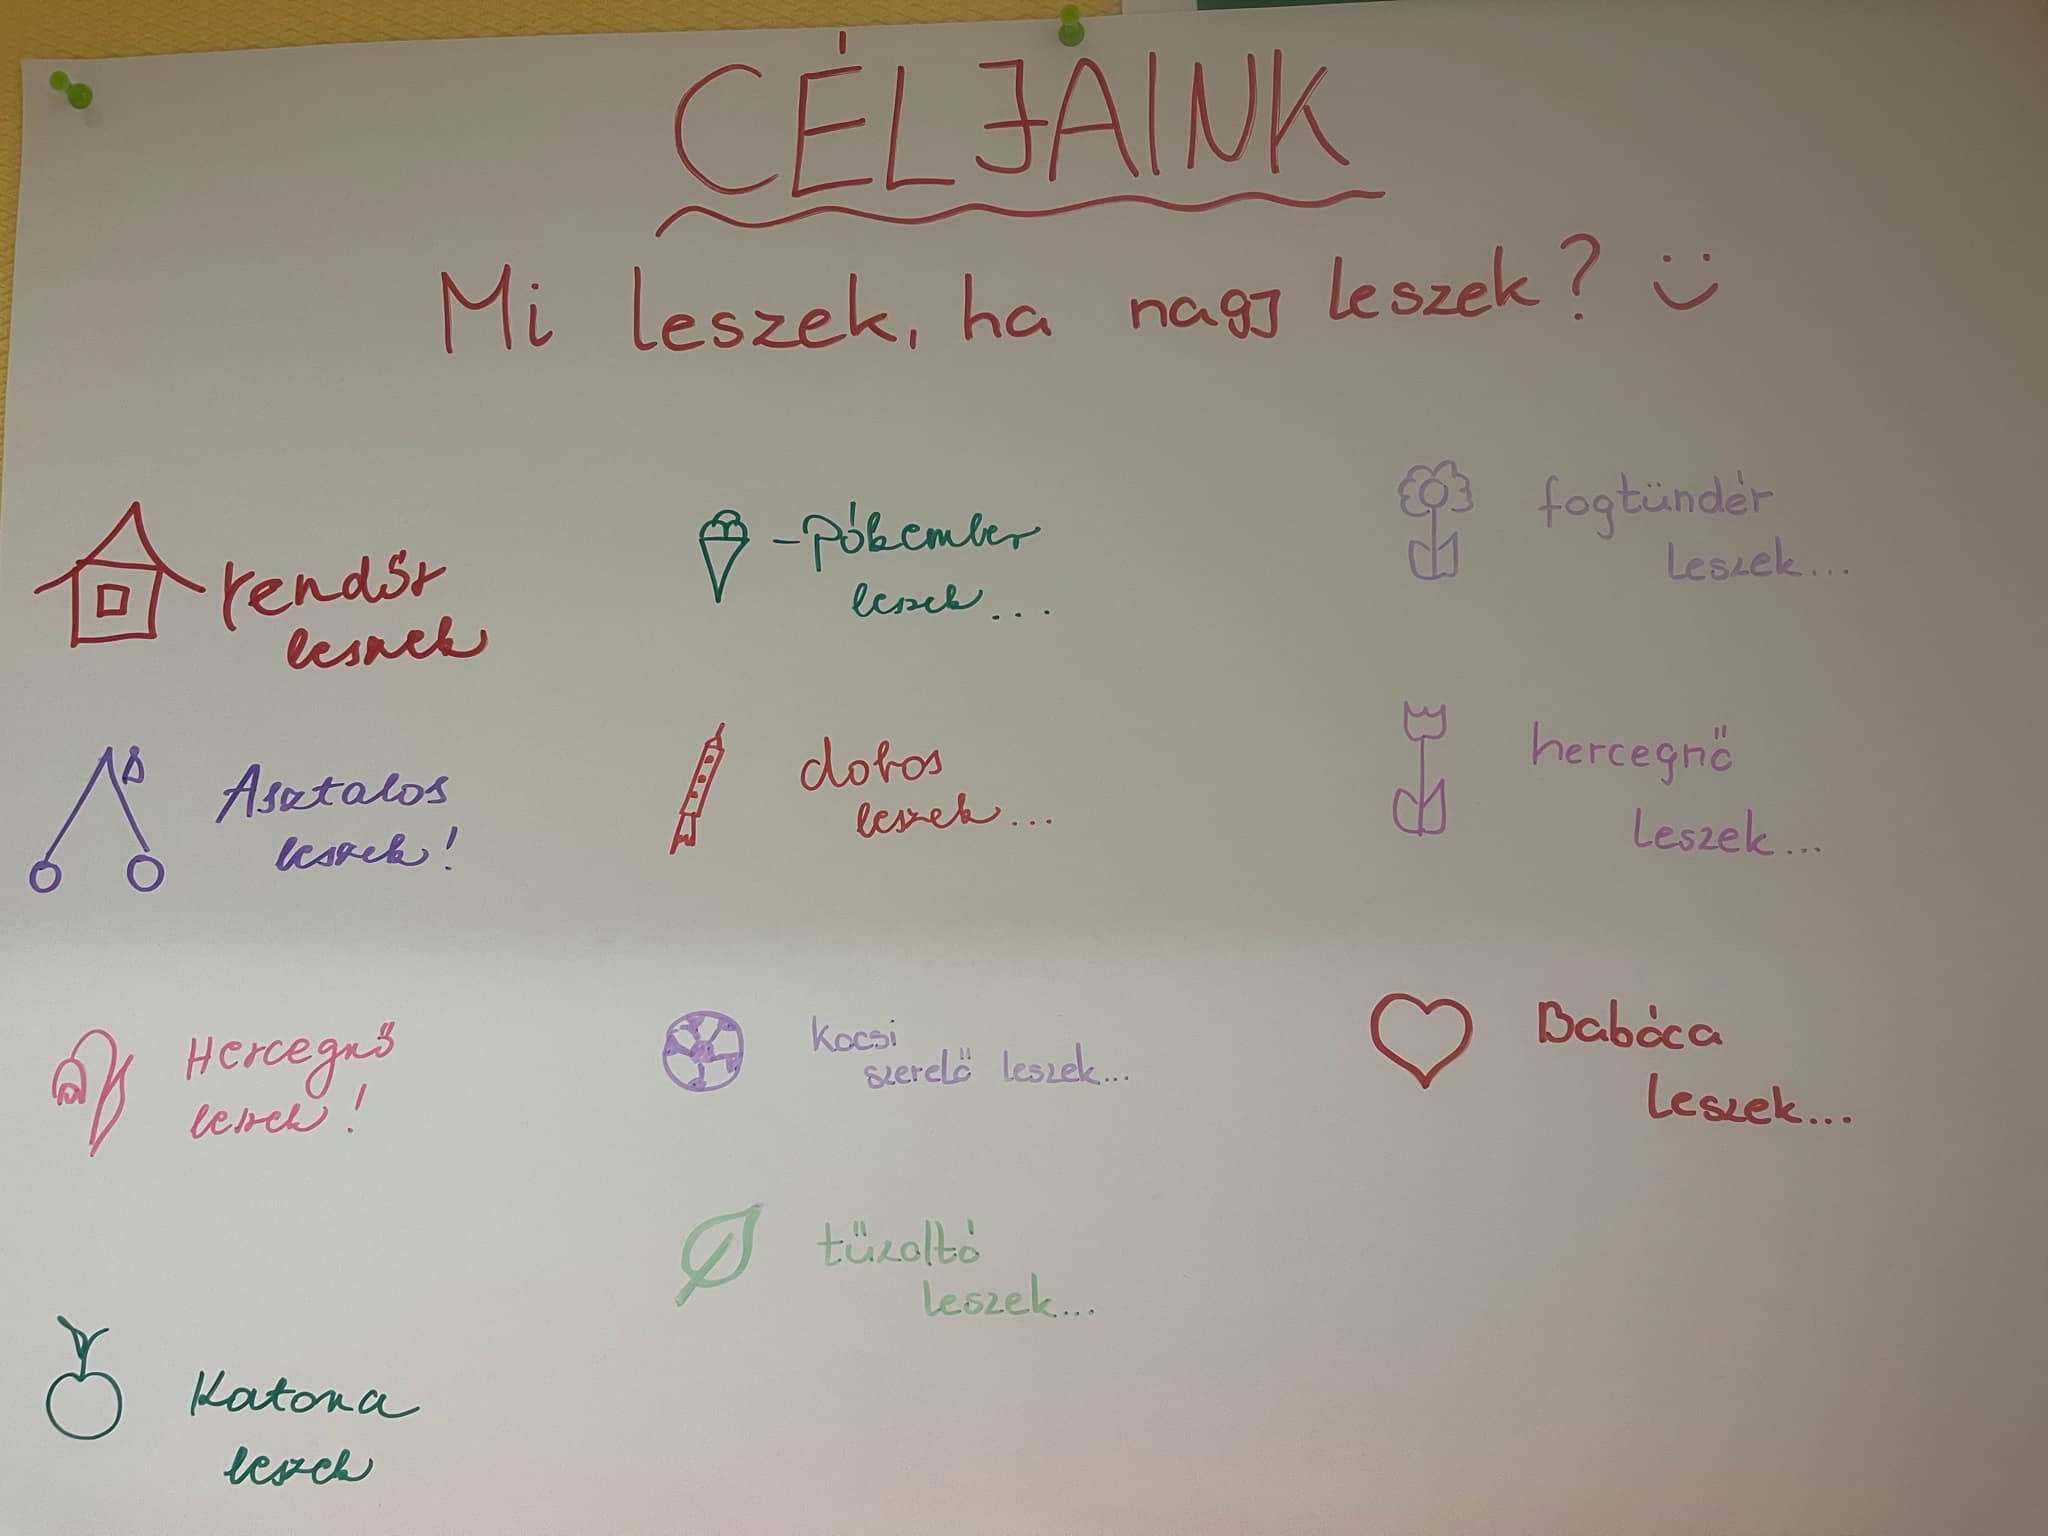 CÉLJAINK
Mi leszek, ha nagy leszek?
rendőr
leszek
Asztalos
leszek!
Hercegnő
leszek!
Katona
leszek
-Pókember
leszek...
dobos
leszek...
Kocsi
szerelő leszek...
tűzoltó
leszek...
fogtündér
leszek...
hercegnő
leszek...
Babóca
leszek...